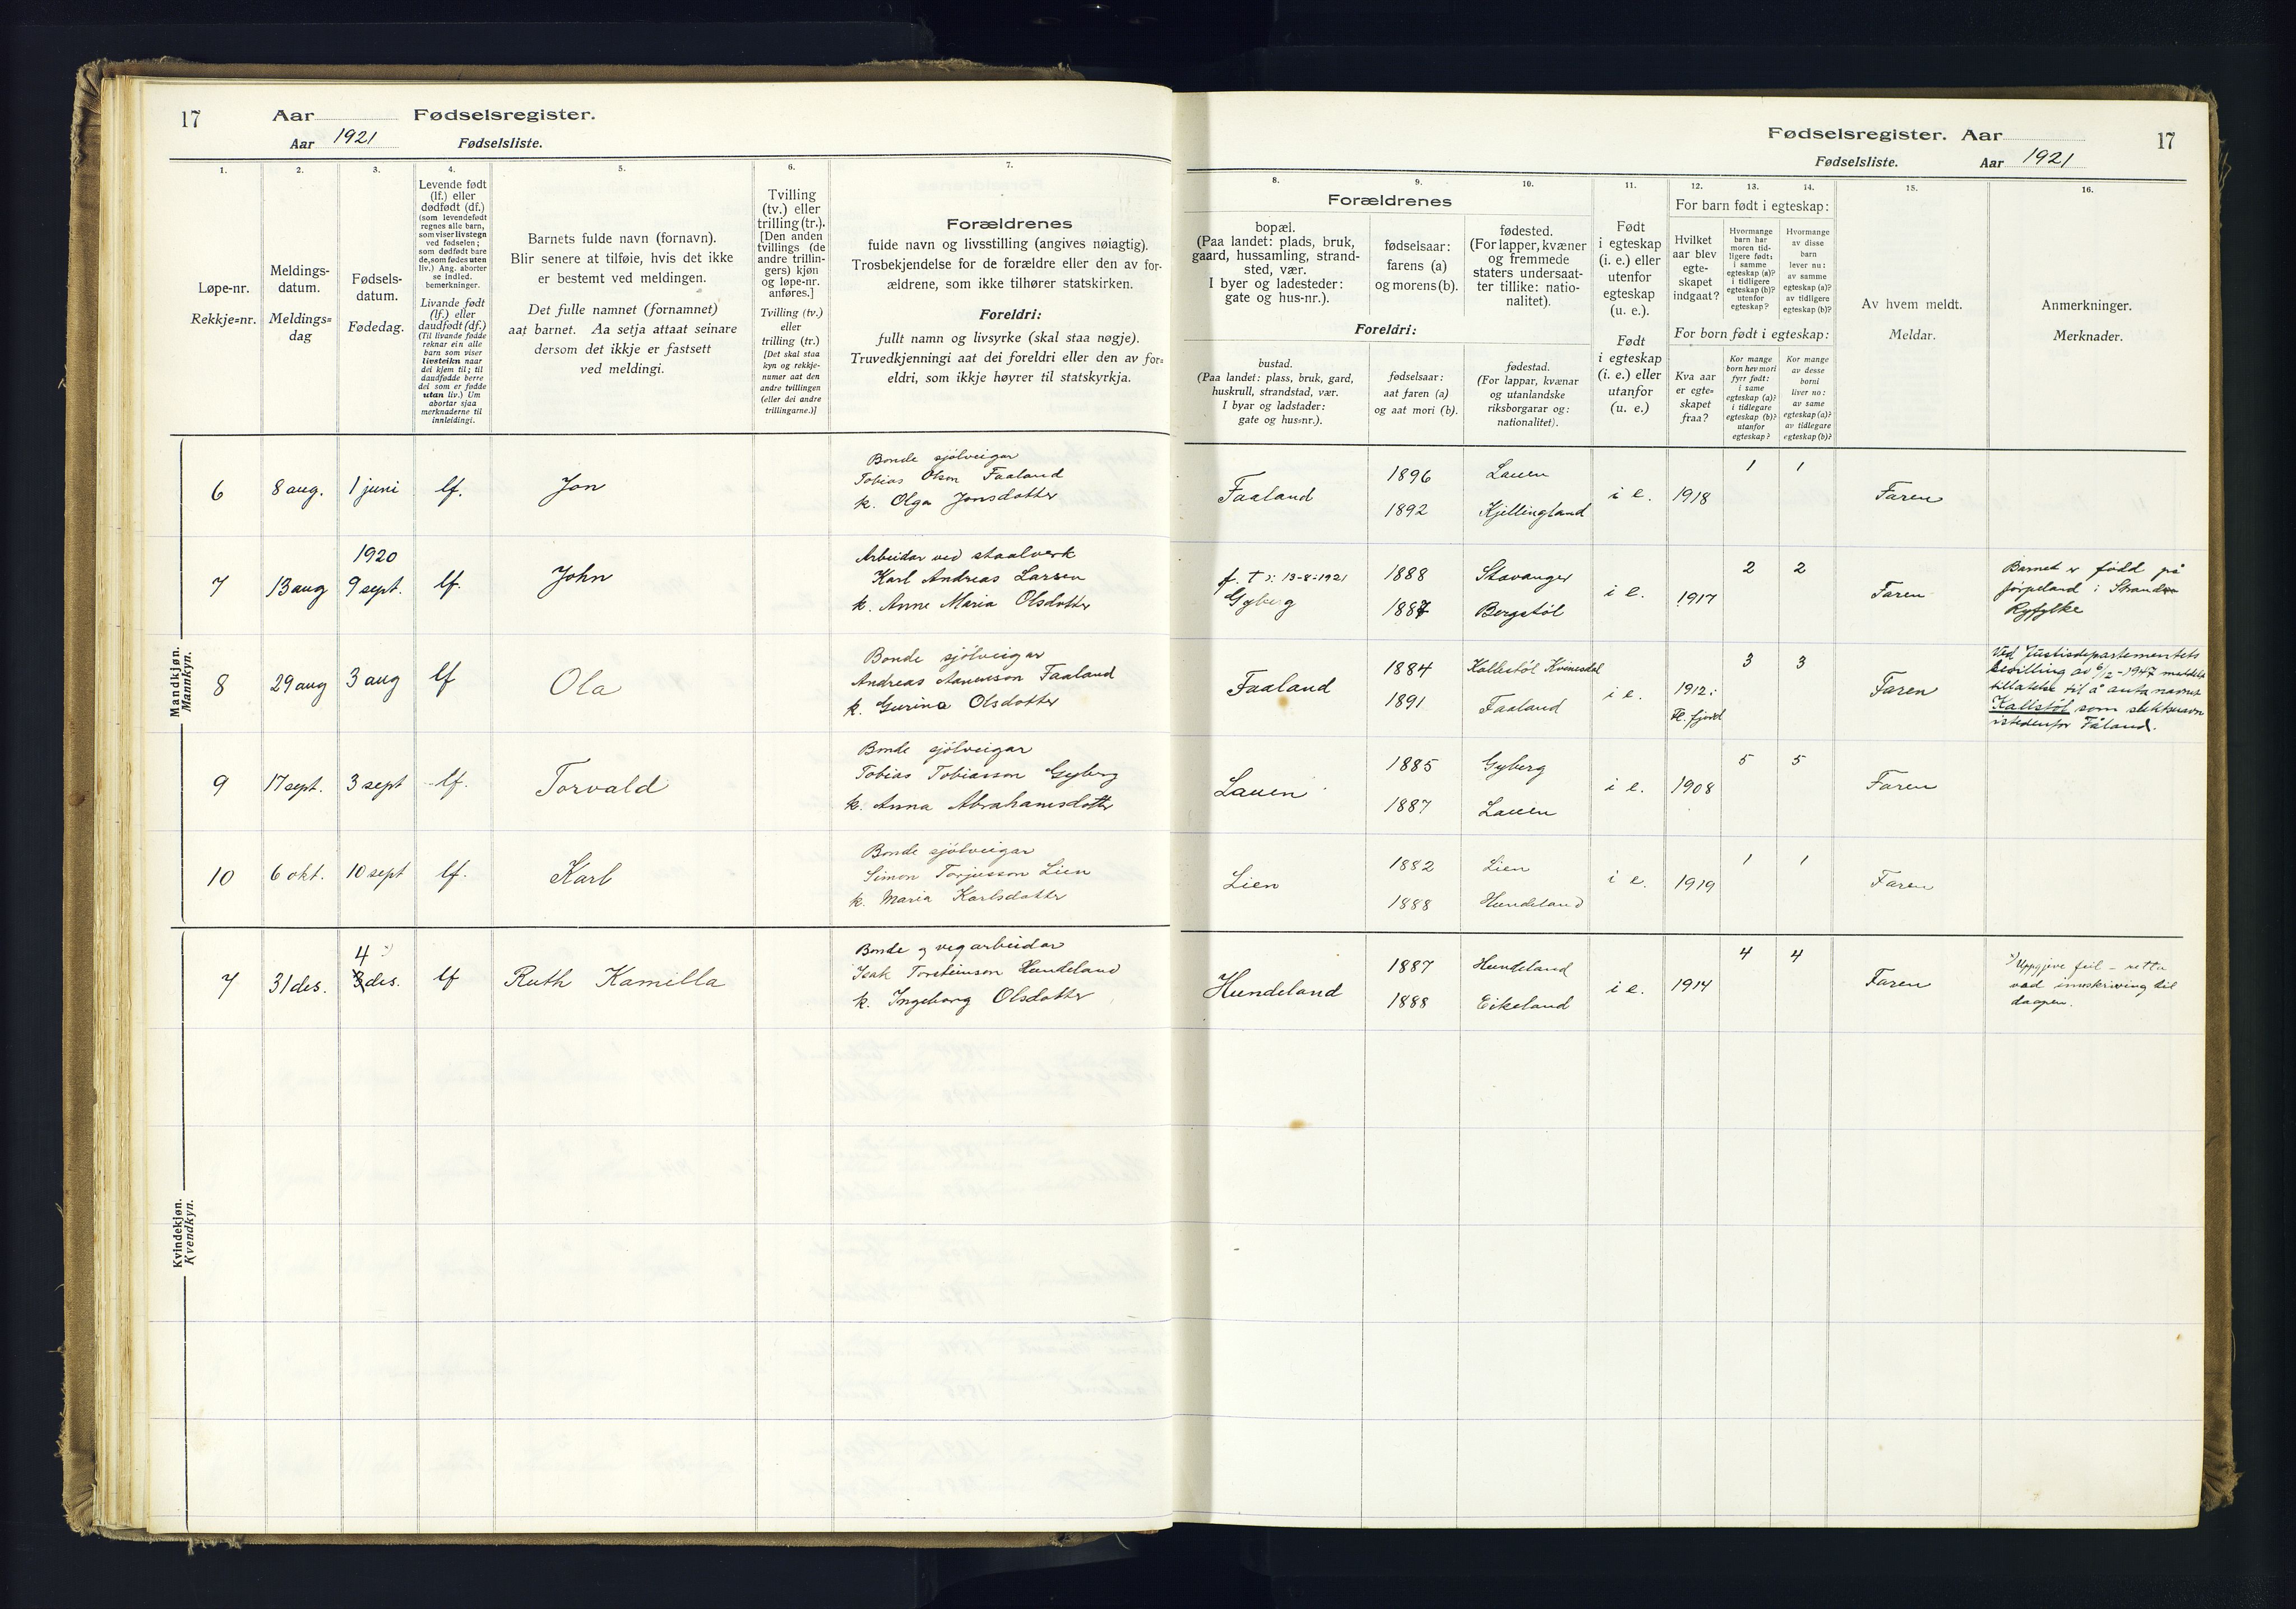 17 Aar Fødselsregister.
Aar 1921 Fødselsliste.
1. 2. 3. 4. 5. 6. 7.
Løpe-nr.
Rekkje=nr.
Meldings-
datum.
Meldings=
dag
Fødsels-
datum.
Fødedag.
Levende født
(lf.) eller
dødfødt (df.)
(som levendefødt
regnes alle barn,
som viser livstegn
ved fødselen;
som dødfødt bare
de, som fødes uten
liv.) Ang. aborter
se indled.
bemerkninger.
Livande født
(lf.) eller
daudfødt (df.)
(Til livande fødde
reknar ein alle
barn som viser
livsteikn naar
dei kjem til; til
daudfødde berre
dei som er fødde
utan liv.) Um
abortar sjaa
merknaderne til
innleidingi.
Barnets fulde navn (fornavn).
Blir senere at tilføie, hvis det ikke
er bestemt ved meldingen.
Det fulle namnet (fornamnet)
aat barnet. Aa setja attaat seinare
dersom det ikkje er fastsett
ved meldingi.
Tvilling
(tv.) eller
trilling (tr.).
[Den anden
tvillings (de
andre trillin-
gers) kjøn
og løpe-nr.
anføres.]
Tvilling (tv.)
eller
trilling (tr.)
[Det skal staa
kyn og rekkje-
numer aat den
andre tvillingen
(eller dei andre
trillingarne.)]
Forældrenes
fulde navn og livsstilling (angives nøiagtig).
Trosbekjendelse for de forældre eller den av for-
ældrene, som ikke tilhører statskirken.
Foreldri:
fullt namn og livsyrke (skal staa nøgje).
Truvedkjenningi aat dei foreldri eller den av for=
eldri, som ikkje høyrer til statskyrkja.
Fødselsregister. Aar 17
Fødselsliste. Aar 1921
8. 9. 10. 11. 12. 13. 14. 15. 16.
Forældrenes
bopæl.
(Paa landet: plads, bruk,
gaard, hussamling, strand-
sted, vær.
I byer og ladesteder:
gate og hus-nr.).
fødselsaar:
farens (a)
og morens (b).
fødested.
(For lapper, kvæner
og fremmede
staters undersaat-
ter tillike: natio-
nalitet).
Foreldri:
bustad.
(Paa landet: plass, bruk, gard,
huskrull, strandstad, vær.
I byar og ladstader:
gate og hus=nr.).
fødselsaar:
aat faren (a)
og aat mori (b).
fødestad.
(For lappar, kvænar
og utanlandske
riksborgarar og:
nationalitet).
Født
i egteskap
(i. e.) eller
utenfor
egteskap
(u. e.).
Født
i egteskap
(i. e.) eller
utanfor
(u. e.)
For barn født i egteskap:
Hvilket
aar blev
egte-
skapet
indgaat?
Hvormange
barn har
moren tid-
ligere født:
i samme
egteskap (a)?
i tidligere
egteskap (b)?
utenfor
egteskap?
Hvormange
av disse
barn
lever nu:
av samme
egteskap (a)?
av tidligere
egteskap (b)?
For born født i egteskap:
Kva aar
er egte=
skapet
fraa?
Kor mange
born hev mori
fyrr født:
i same
egteskap (a)?
i tidlegare
egteskap (b)?
utanfor
egteskap?
Kor mange
av desse
borni
liver no:
av same
egteskap (a)?
av tidlegare
egteskap (b)?
Av hvem meldt.
Meldar.
Anmerkninger.
Merknader.
Mandkjøn.
Mannkyn.
6 8 aug. 1 juni lf. Jon
Bonde sjölveigar
Tobias Olsen Faaland
k. Olga Jonsdotter
Faaland
1896 Lauen
1892 Kjellingland
i e. 1918 1 1 Faren
7 13 aug 1920
9 sept. lf. John
Arbeidar ved staalverk
Karl Andreas Larsen
k. Anne Maria Olsdotter
f. t : 13-8-1921
Gyberg
1888 Stavanger
1887 Bergstöl
i e. 1917 2 2 Faren
Barnet er född på
Jørpeland i Strand
Ryfylke
8 29 aug 3 aug lf Ola
Bonde sjölveigar
Andreas Aanenson Faaland
k. Gurina Olsdotter
Faaland
1884 Kallestöl Kvinesdal
1891 Faaland
i e. 1912:
Fl. fjord
3 3 Faren
Ved Justisdepartementets
bevilling av 6/2-1947 meddelt
tillatelse til å anta navnet
Kallstöl som slektsnavn
istedenfor Fåland.
9 17 sept. 3 sept lf. Torvald
Bonde sjölveigar
Tobias Tobiasson Gyberg
k. Anna Abrahamsdotter
Lauen
1885 Gyberg
1887 Lauen
i e. 1908 5 5 Faren
10 6 okt. 10 sept lf. Karl
Bonde sjölveigar
Simon Torjusson Lien
k. Maria Karlsdotter
Lien
1882 Lien
1888 Hundeland
i e. 1919 1 1 Faren
Kvindekjøn.
Kvendkyn.
7 31 des. 4
3 des. lf Ruth Kamilla
Bonde og vegarbeidar
Isak Torsteinson Hundeland
k. Ingeborg Olsdotter
Hundeland
1887 Hundeland
1888 Eikeland
i e. 1914 4 4 Faren
Uppgjeve feil – retta
ved innskriving til
daapen.